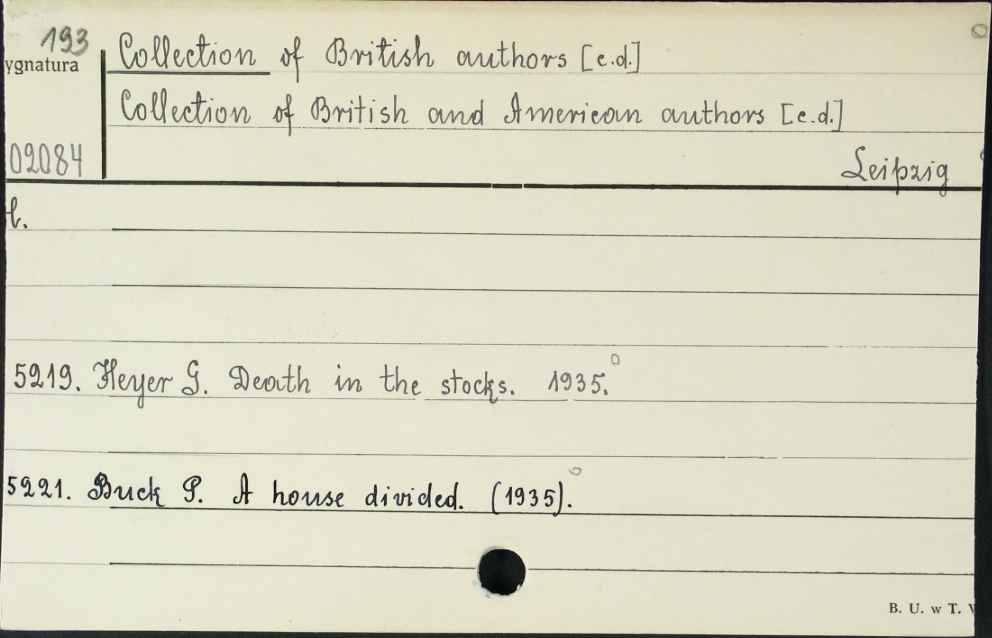 193
ygnatura
Collection of British authors [c.d.]
Collection of British and American authors [c.d.]
02084
Leipzig
t.
5219. Heyer G. Death in the stocks. 1935.
5221. Buck P. A house divided. (1935).
B. U. w T.